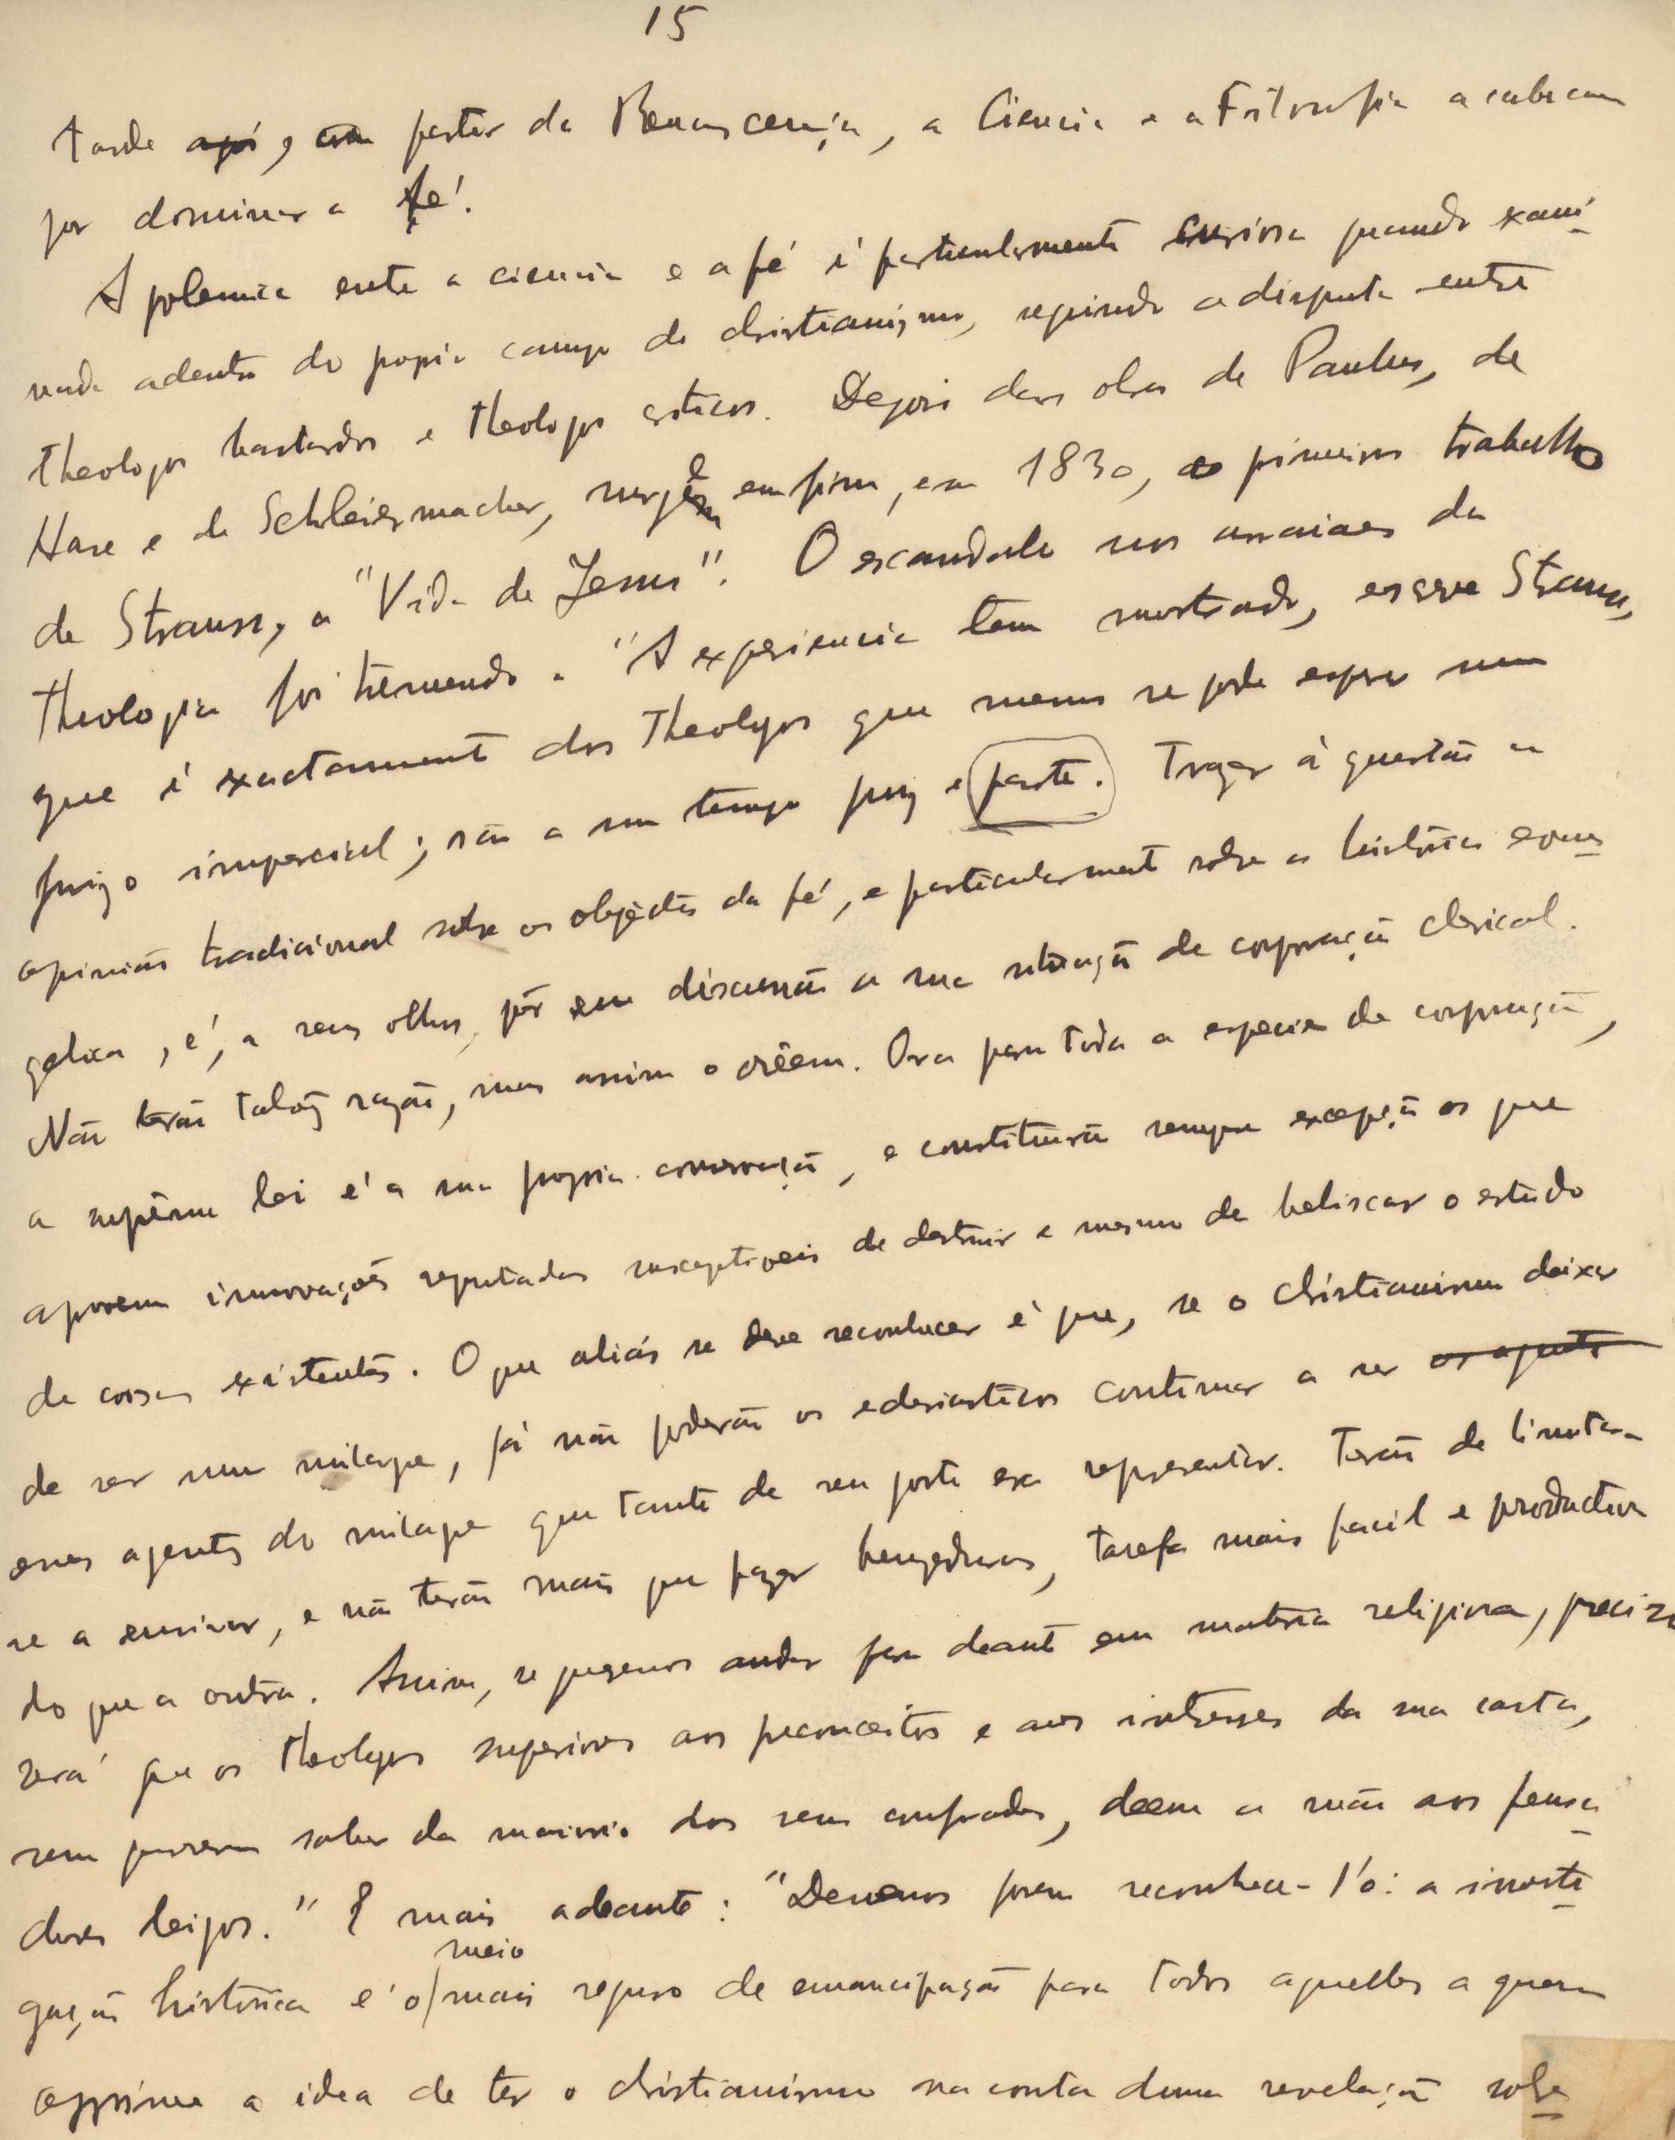 15
tarde após, a partir da Renascença, a Ciencia e a Filosofia acabaram
por dominar a fé.
A polemica entre a ciencia e a fé é particularmente curiosa quando exami-
nada adentro do proprio campo do christianismo, seguindo a disputa entre
theologos bastardos e theologos criticos. Depois das obras de Paulus, de
Hase e de Schleiermacher, surge emfim, em 1830, o primeiro trabalho
de Strauss, a "Vida de Jesus". O escandalo nos arraiaes da
theologia foi tremendo. "A experiencia tem mostrado, escreve Strauss,
que é exactamente dos theologos que menos se pode esperar um
juizo imparcial; são a um tempo juiz e parte. Trazer á questão a
opinião tradicional sobre os objectos da fé, e particularmente sobre a historia evan-
gelica, é, a seus olhos, pôr em discussão a sua situação de corporação clerical.
Não terão talvez razão, mas assim o crêem. Ora para toda a especie de corporação,
a suprema lei é a sua propria conservação, e constituirão sempre excepção os que
aprovem innovações reputadas susceptiveis de destruir e mesmo de beliscar o estado
de cousas existentes. O que aliás se deve reconhecer é que, se o christianismo deixar
de ser um milagre, já não poderão os eclesiasticos continuar a ser os agentes
esses agentes do milagre que tanto de seu gosto era representar. Terão de limitar-
se a ensinar, e não terão mais que fazer benzeduras, tarefa mais facil e productiva
do que a outra. Assim, se quizermos andar para deante em materia religiosa, preciso
será que os theologos superiores aos preconceitos e aos interesses da sua casta,
sem quererem saber da maioria dos seus confrades, deem a mão aos pensa-
dores leigos." E mais adeante: "Devemos porem reconhece-l'o: a investi-
gação historica é o mais seguro de emancipação para todos aquelles a quem
meio
opprime a idea de ter o christianismo na conta duma revelação sobre-